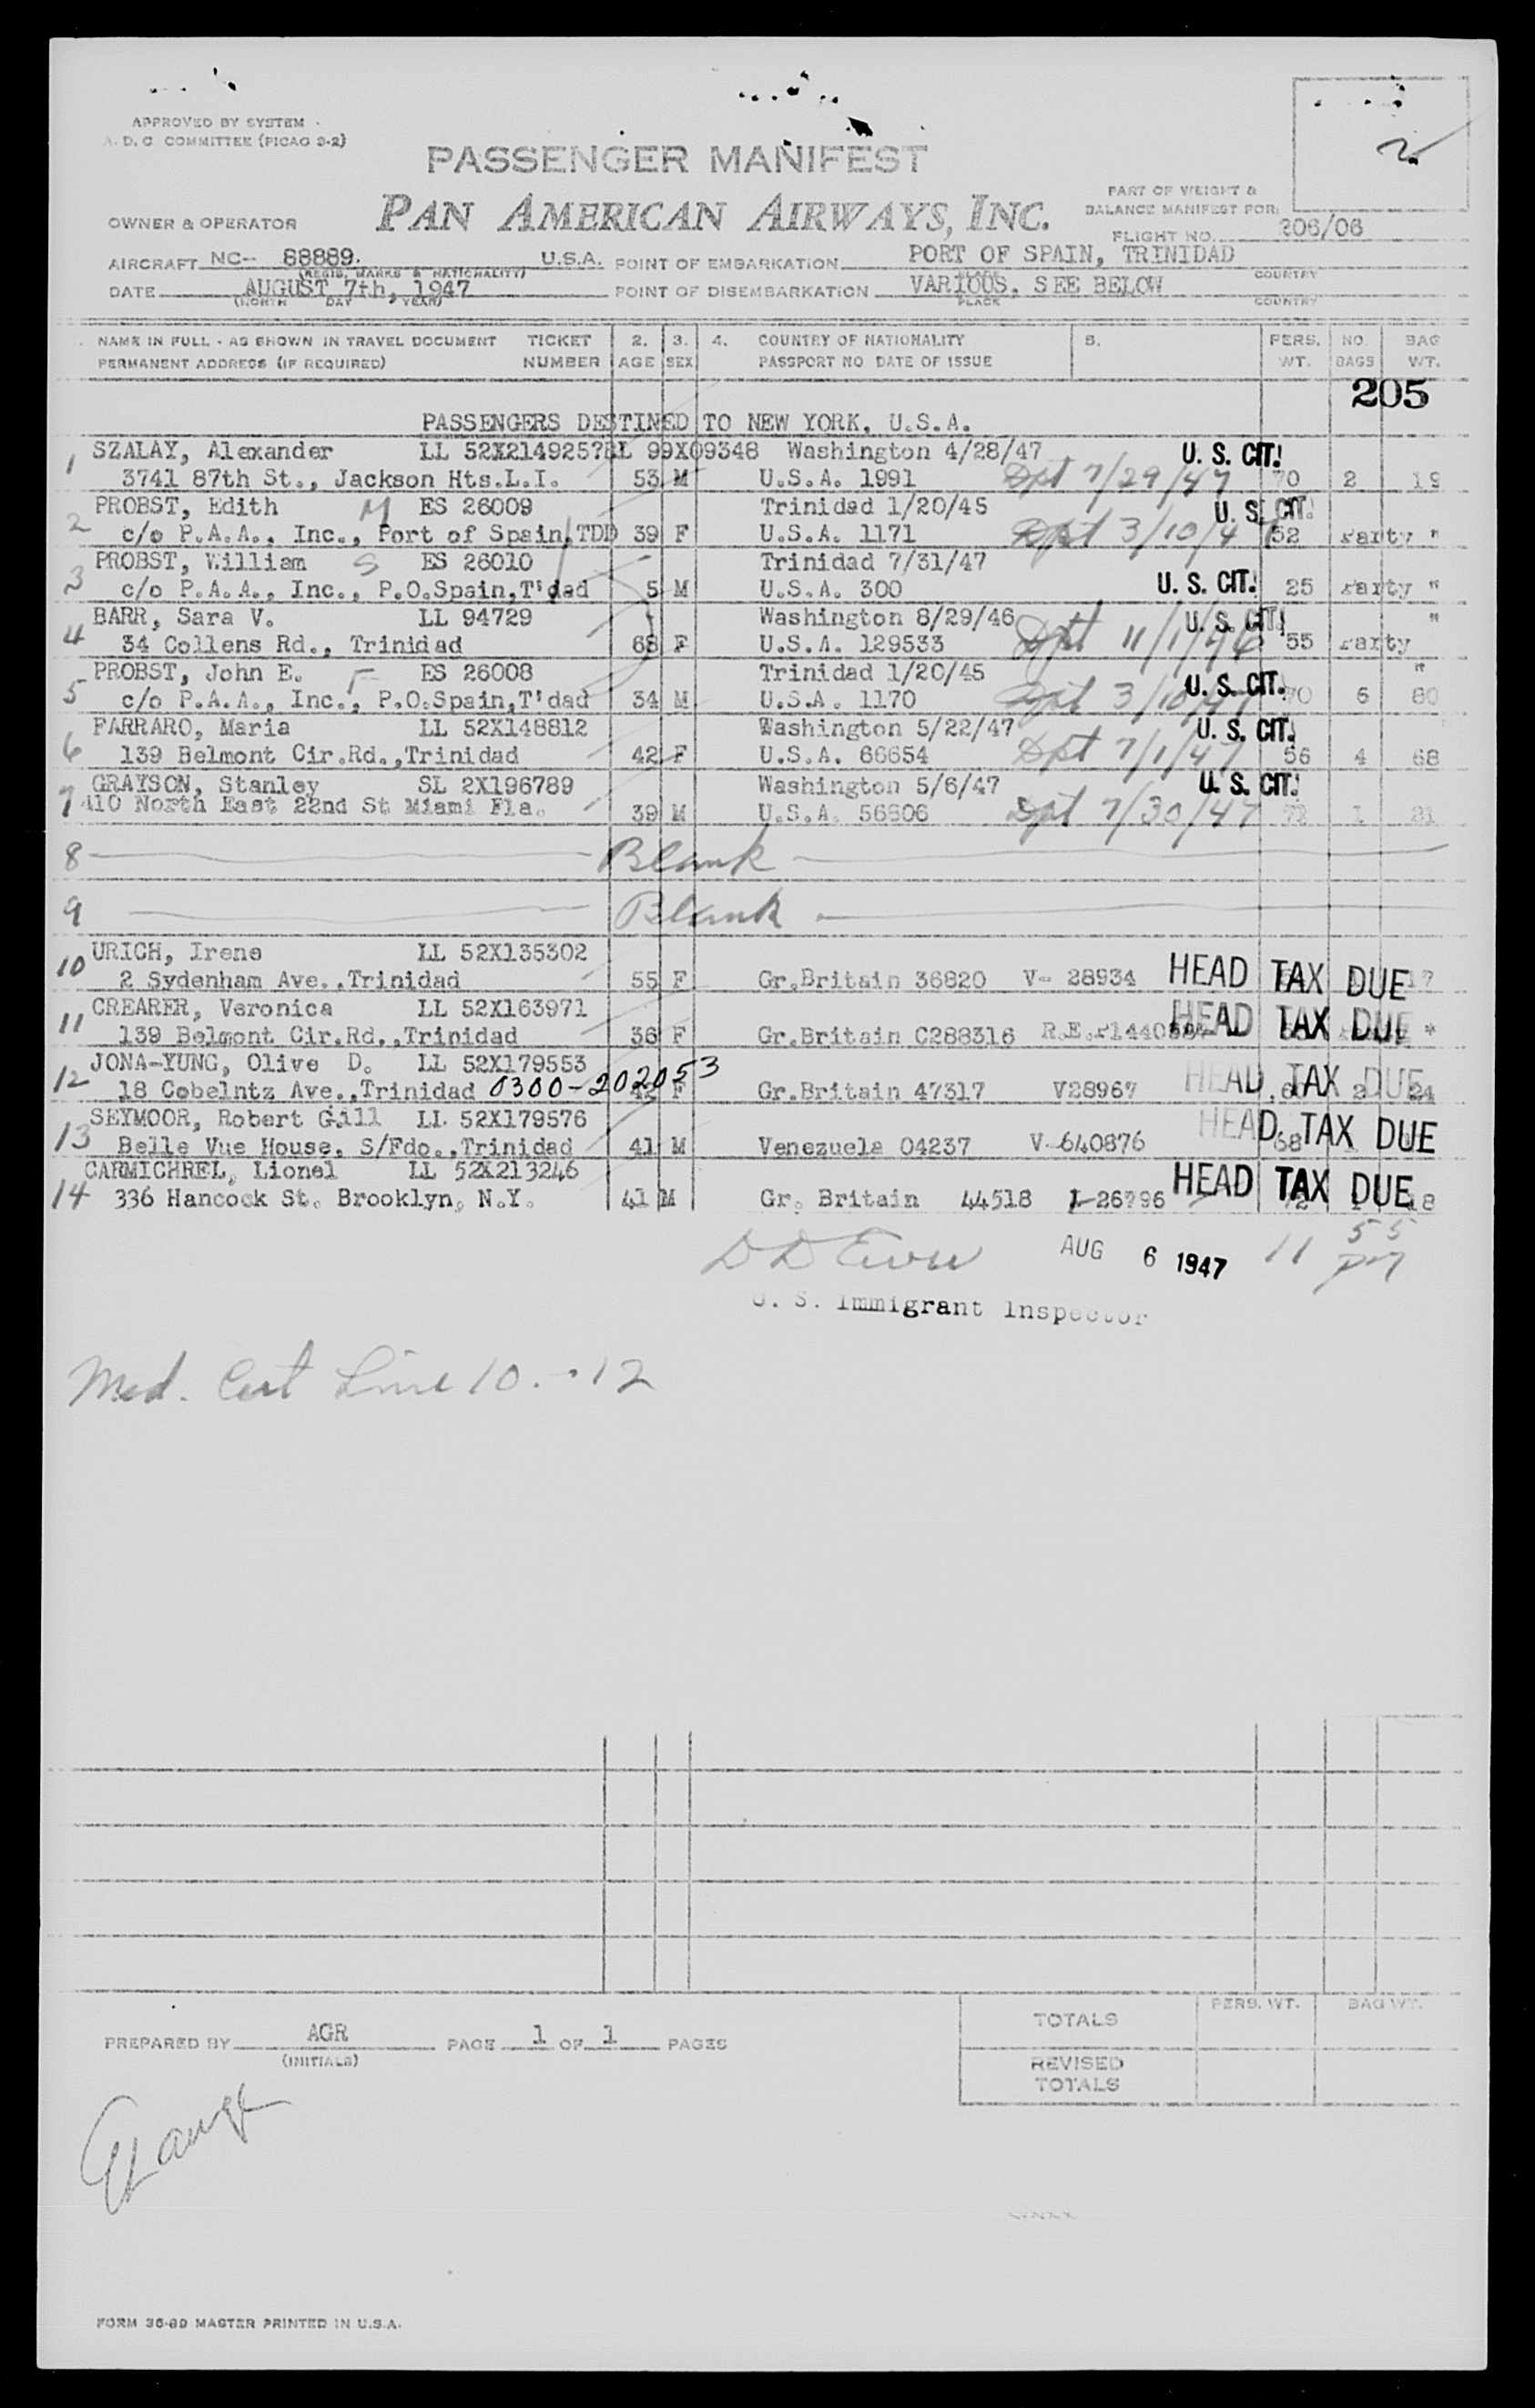 APPROVED BY SYSTEM
A. D. C COMMITTEE (PICAO 9-2)
2
PASSENGER MANIFEST
PAN AMERICAN AIRWAYS, INC.
PART OF WEIGHT &
BALANCE MANIFEST FOR:
OWNER & OPERATOR
FLIGHT NO. 206/06
AIRCRAFT NC-- 88889. U.S.A. POINT OF EMBARKATION PORT OF SPAIN, TRINIDAD
(REGIS. MARKS & NATIONALITY) PLACE COUNTRY
DATE AUGUST 7th, 1947 POINT OF DISEMBARKATION VARIOUS. SEE BELOW
(MONTH DAY YEAR) PLACE COUNTRY
NAME IN FULL - AS SHOWN IN TRAVEL DOCUMENT TICKET 2. 3. 4. COUNTRY OF NATIONALITY 5. PERS. NO. BAG
PERMANENT ADDRESS (IF REQUIRED) NUMBER AGE SEX PASSPORT NO DATE OF ISSUE WT. BAGS WT.
205
PASSENGERS DESTINED TO NEW YORK, U.S.A.
SZALAY, Alexander LL 52X214925 99X09348 Washington 4/28/47 U. S. CIT.
1 3741 87th St., Jackson Hts.L.I. 53 M U.S.A. 1991 Dpt 7/29/47 70 2 19
PROBST, Edith M ES 26009 Trinidad 1/20/45 U. S. CIT.
2 c/o P.A.A., Inc., Port of Spain,TDD 39 F U.S.A. 1171 Dpt 3/10/47 52 Party "
PROBST, William S ES 26010 Trinidad 7/31/47
3 c/o P.A.A., Inc., P.O.Spain,T'dad 5 M U.S.A. 300 U. S. CIT. 25 Party "
BARR, Sara V. LL 94729 Washington 8/29/46 U. S. CIT. "
4 34 Collens Rd., Trinidad 68 F U.S.A. 129533 Dpt 11/1/46 55 Party
PROBST, John E. F ES 26008 Trinidad 1/20/45 "
5 c/o P.A.A., Inc., P.O.Spain,T'dad 34 M U.S.A. 1170 Dpt 3/10/47 U. S. CIT. 70 6 80
FARRARO, Maria LL 52X148812 Washington 5/22/47 U. S. CIT.
6 139 Belmont Cir.Rd.,Trinidad 42 F U.S.A. 66654 Dpt 7/1/47 56 4 68
GRAYSON, Stanley SL 2X196789 Washington 5/6/47 U. S. CIT.
7 410 North East 22nd St Miami Fla. 39 M U.S.A. 56806 Dpt 7/30/47 72 1 21
8 Blank
9 Blank
URICH, Irene LL 52X135302
10 2 Sydenham Ave.,Trinidad 55 F Gr.Britain 36820 V- 28934 HEAD TAX DUE 17
CREARER, Veronica LL 52X163971
11 139 Belmont Cir.Rd.,Trinidad 36 F Gr.Britain C288316 R.E. HEAD TAX DUE *
JONA-YUNG, Olive D. LL 52X179553
12 18 Cobelntz Ave.,Trinidad 0300-202053 42 F Gr.Britain 47317 V28967 HEAD TAX DUE 2 24
SEYMOOR, Robert Gill LL 52X179576
13 Belle Vue House, S/Fdo.,Trinidad 41 M Venezuela 04237 V-640876 HEAD TAX DUE 68
CARMICHREL, Lionel LL 52X213246
14 336 Hancock St. Brooklyn, N.Y. 41 M Gr. Britain 44518 I-26796 HEAD TAX DUE 72 18
AUG 6 1947 11 55 pm
U. S. Immigrant Inspector
Med. Cert Line 10. - 12
TOTALS PERS. WT. BAG WT.
PREPARED BY AGR PAGE 1 OF 1 PAGES
(INITIALS)
REVISED
TOTALS
FORM 36-89 MASTER PRINTED IN U.S.A.